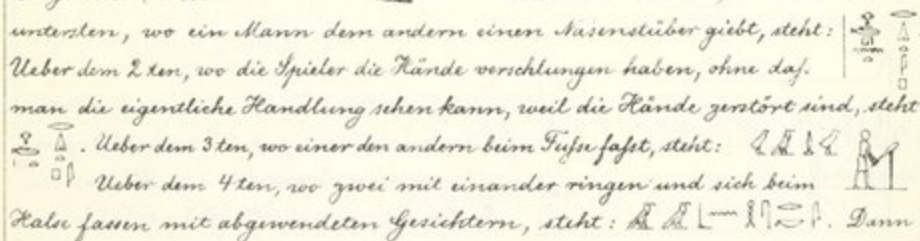 untersten, wo ein Mann dem andern einen Nasenstüber giebt, steht:
Ueber dem 2ten, wo die Spieler die Hände verschlungen haben, ohne daſs
man die eigentliche Handlung sehen kann, weil die Hände zerstört sind, steht
. Ueber dem 3ten, wo einer den andern beim Fuſse faſst, steht:
Ueber dem 4ten, wo zwei mit einander ringen und sich beim
Halse fassen mit abgewendeten Gesichtern, steht: . Dann